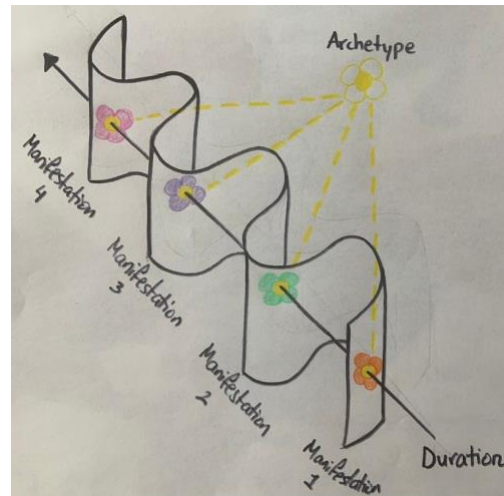 Archetype
Manifestation
4
Manifestation
3
Manifestation
2
Manifestation
1
Duration